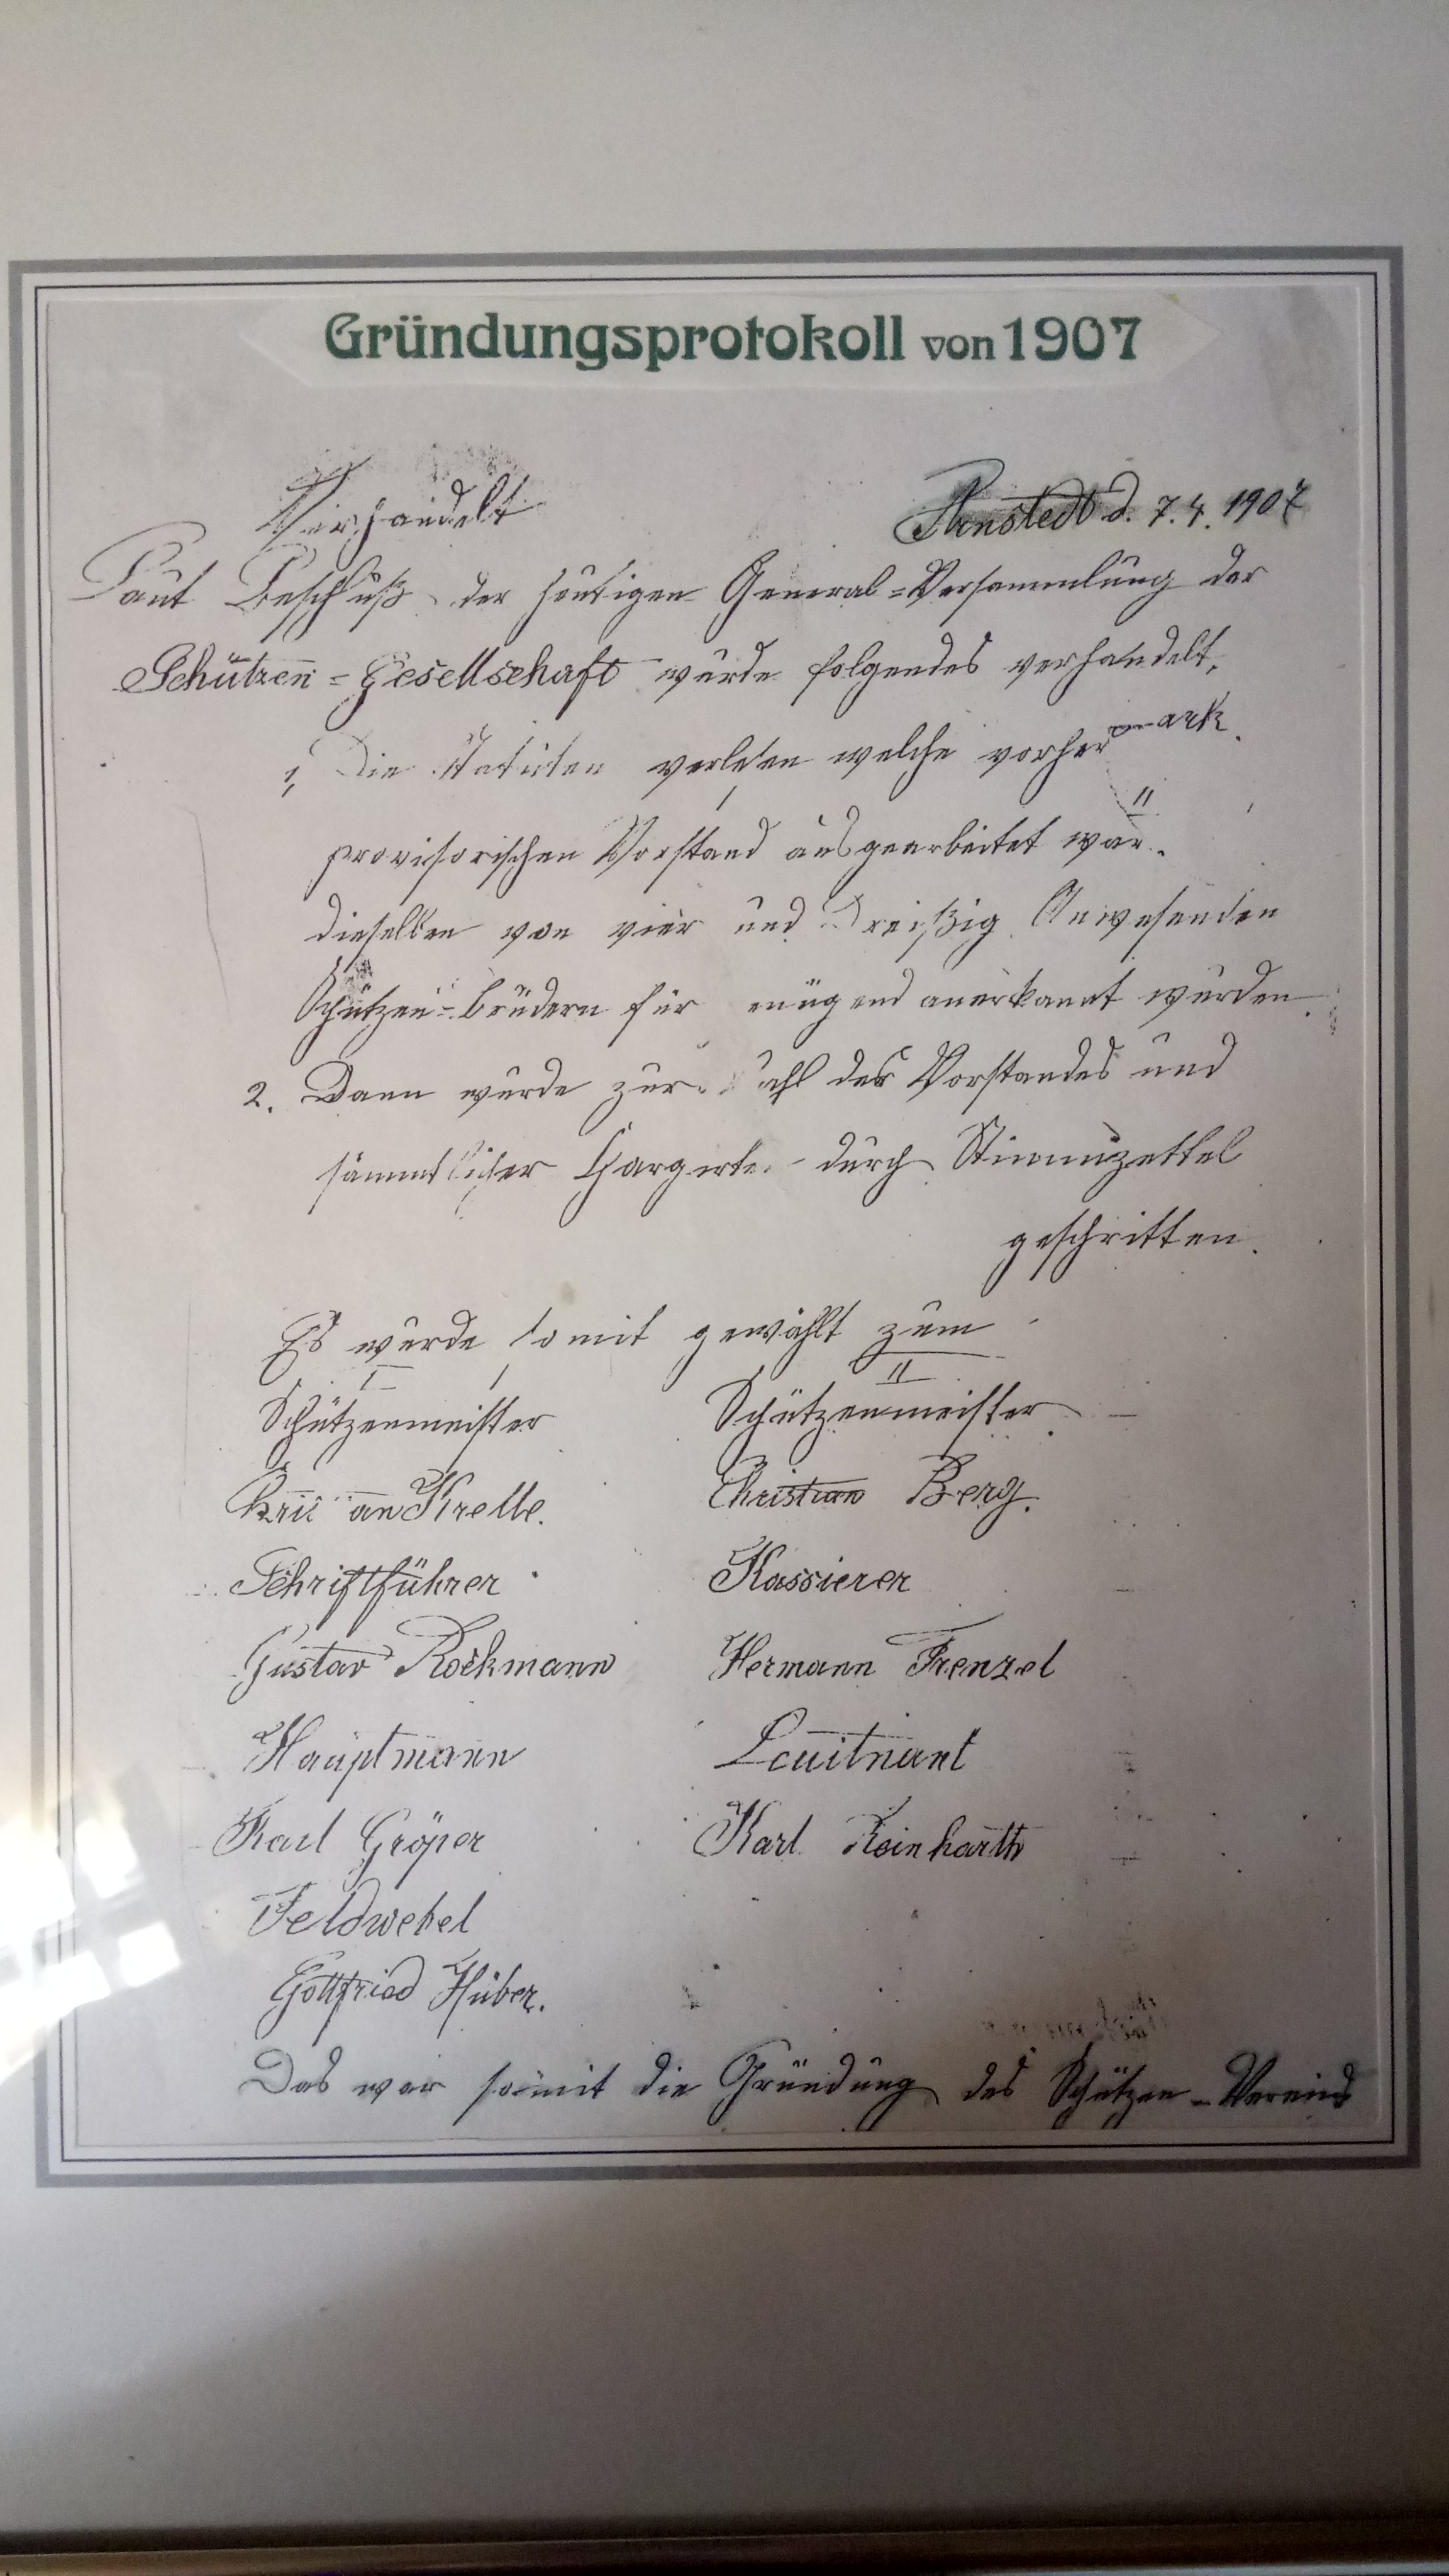 Gründungsprotokoll von 1907
Verhandelt
Arnstedt d. 7.4.1907
Laut Beschluß der heutigen General=Versammlung der
Schützen=Gesellschaft wurde folgendes verhandelt.
1, Die Statuten verlesen welche vorher
provisorischen Vorstand ausgearbeitet war.
dieselben von vier und Dreißig Anwesenden
Schützen=brüdern für enügend anerkannt wurden.
2. Dann wurde zur ahl des Vorstandes und
sämmtlicher durch Stimmzettel
geschritten.
Es wurde somit gewählt zum
I II
Schützenmeister Schützenmeister
Krelle. Christian Berg.
Schriftführer Kassierer
Gustav Rockmann Hermann Frenzel
Hauptmann Leuitnant
Karl Gröper Karl Reinharth
Feldwebel
Gottfried Huber.
Das war somit die Gründung des Schützen-Vereins